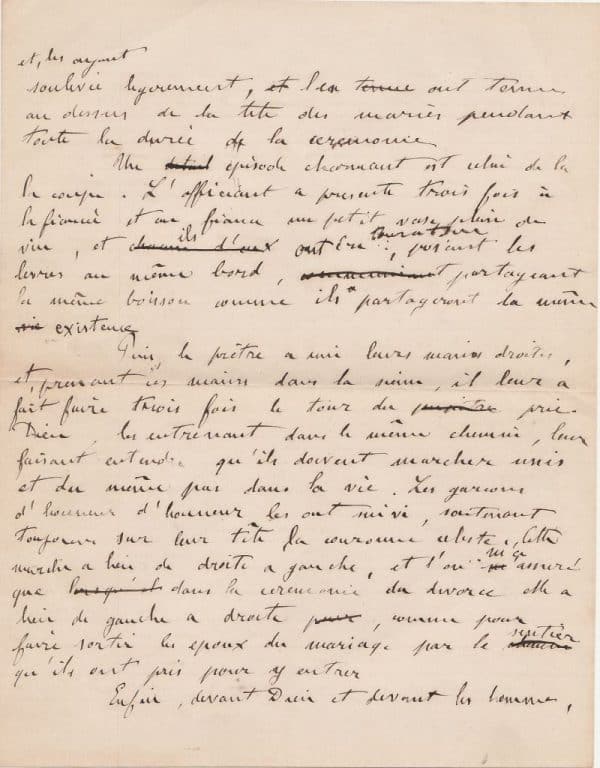 et, les ayant
soulevée legerement, et l'en tenue ont tenue
au dessus de la tête des mariés pendant
toute la durée de la ceremonie
Un détail episode charmant est celui de la
la coupe. L'officiant a presenté trois fois à
la fiancée et au fiancé un petit vase plein de
vin, et chacun d'eux ils ont bu, posant les
levres au même bord, partageant
la même boisson comme ils partageront la même
vie existence
Puis, le prêtre a uni leurs mains droites,
et, prenant ces mains dans la sienne, il leur a
fait faire trois fois le tour du pupitre prie-
Dieu, les entrenant dans le même chemin, leur
faisant entendre qu'ils doivent marcher unis
et du même pas dans la vie. Les garcons
d'honneur d'honneur les ont suivi, soutenant
toujours sur leur tête la couronne celeste. Cette
marche a lieu de droite a gauche, et l'on m'a assuré
que lorsqu'il dans la ceremonie du divorce elle a
lieu de gauche a droite pour, comme pour
faire sortir les epoux du mariage par le chemin sentier
qu'ils ont pris pour y entrer
Enfin, devant Dieu et devant les hommes,